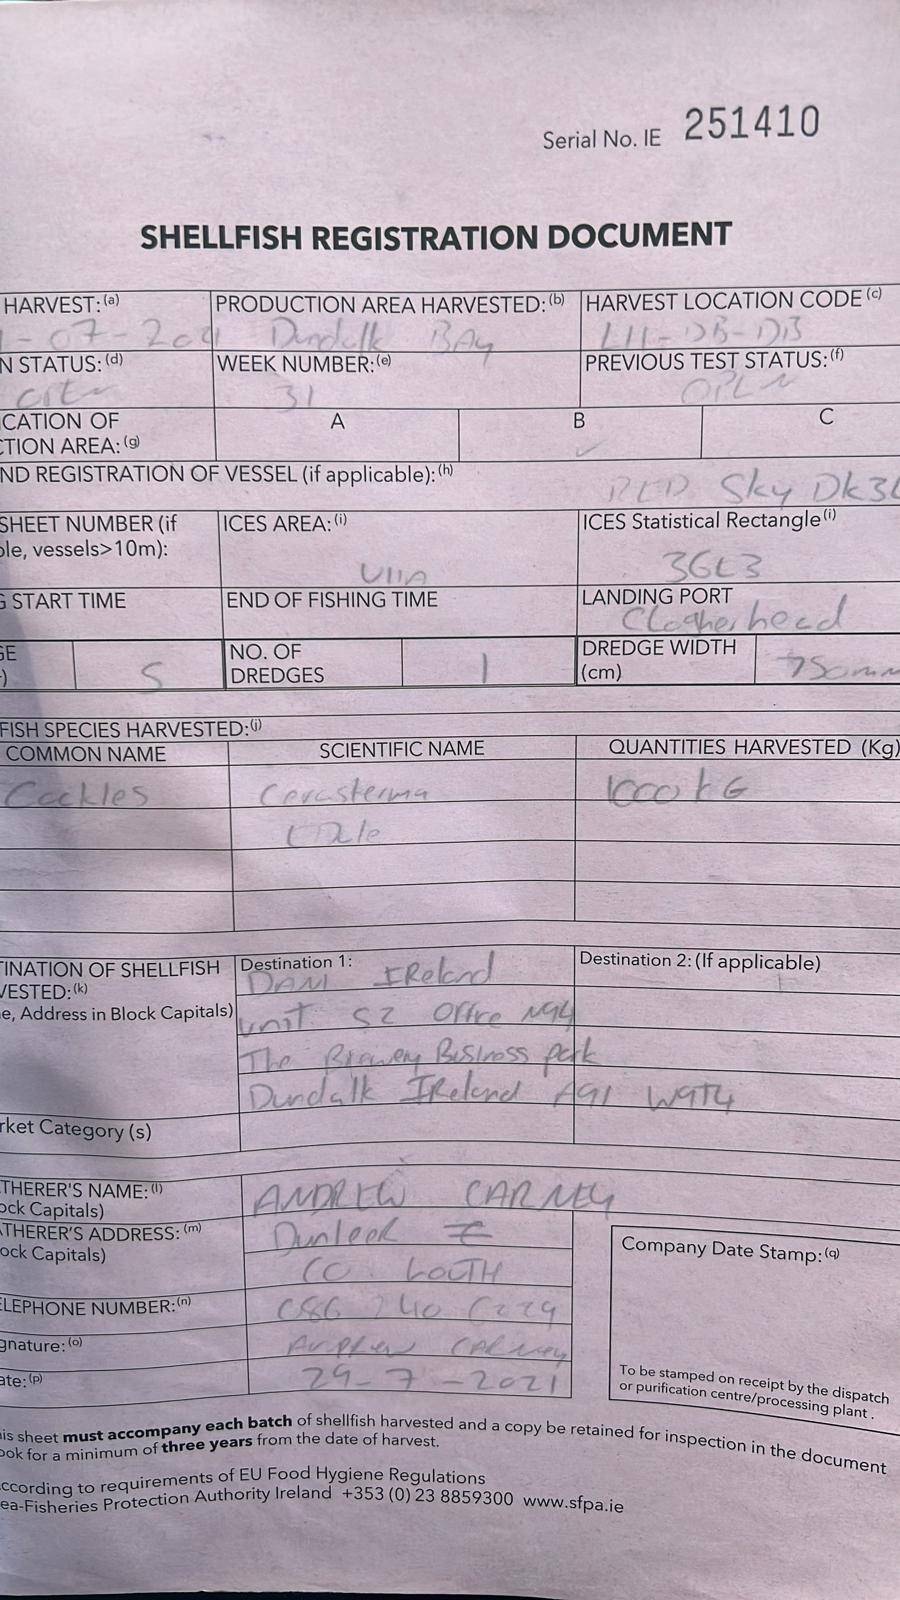 Serial No. IE 251410
SHELLFISH REGISTRATION DOCUMENT
HARVEST: (a) PRODUCTION AREA HARVESTED: (b) HARVEST LOCATION CODE (c)
-07-2021 Dundalk BAy LH-DB-DB
N STATUS: (d) WEEK NUMBER: (e) PREVIOUS TEST STATUS: (f)
31 OPEN
CATION OF A B C
CTION AREA: (g) ✓
ND REGISTRATION OF VESSEL (if applicable): (h)
RED Sky Dk3
SHEET NUMBER (if ICES AREA: (i) ICES Statistical Rectangle (i)
ole, vessels>10m):
VIIA 36E3
G START TIME END OF FISHING TIME LANDING PORT
Clogherhead
GE 5 NO. OF DREDGES 1 DREDGE WIDTH (cm) 750mm
FISH SPECIES HARVESTED: (j)
COMMON NAME SCIENTIFIC NAME QUANTITIES HARVESTED (Kg)
Cockles Cerasterma 1000kG
Edule
TINATION OF SHELLFISH Destination 1: Destination 2: (If applicable)
VESTED: (k) DANI IReland
e, Address in Block Capitals) unit S2 Office N94
The Brewery Business park
Dundalk IReland A91 W9T4
rket Category (s)
THERER'S NAME: (l) ANDREW CARNEY
ock Capitals)
THERER'S ADDRESS: (m) Dunleer
ock Capitals) CO. LOUTH
Company Date Stamp: (q)
ELEPHONE NUMBER: (n) 086
gnature: (o) Andrew CARNey
ate: (p) 29-7-2021
To be stamped on receipt by the dispatch
or purification centre/processing plant.
is sheet must accompany each batch of shellfish harvested and a copy be retained for inspection in the document
ook for a minimum of three years from the date of harvest.
ccording to requirements of EU Food Hygiene Regulations
ea-Fisheries Protection Authority Ireland +353 (0) 23 8859300 www.sfpa.ie